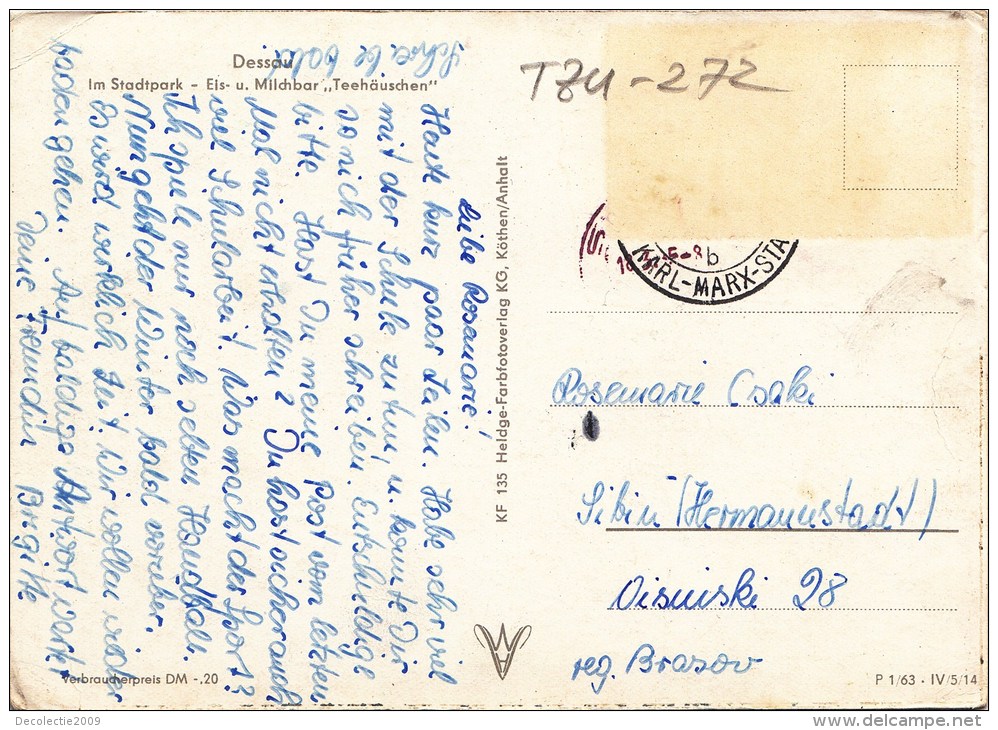 Dessau
Im Stadtpark - Eis- u. Milchbar „Teehäuschen"
Schreibe bald
Liebe Rosemarie!
Heute kurz paar Zeilen. Habe sehr viel
mit der Schule zu tun, u. konnte Dir
so nich früher schreiben. Entschuldige
bitte. Hast Du meine Post vom letzten
Mal nicht erhalten? Du hast sicher auch
viel Schularbeit. Was macht der Sport?
Ich spiele nur noch selten Handball.
Nun geht der Winter bald vorüber.
Es wird wirklich Zeit. Wir wollen wieder
baden gehen. Auf baldige Antwort wartet
Deine Freundin Brigitte
Verbraucherpreis DM -.20
KF 135 Heldge-Farbfotoverlag KG, Köthen/Anhalt
TZU-272
KARL-MARX-STA
b
Rosemarie Csaki
Sibiu (Hermannstadt)
Visinski 28
reg. Brasov
P 1/63 · IV/5/14
Decolectie2009
www.delcampe.net